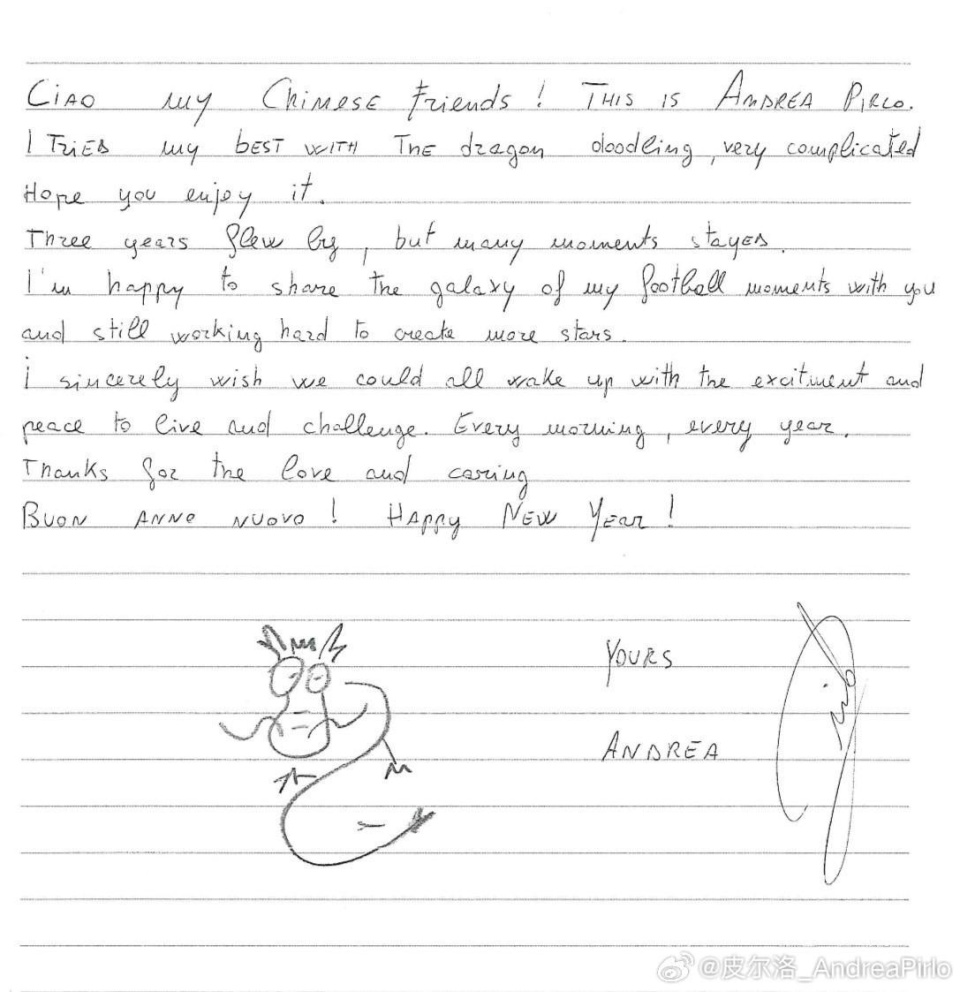 Ciao my Chinese friends! This is Andrea Pirlo.
I tried my best with the dragon doodling, very complicated
Hope you enjoy it.
Three years flew by, but many moments stayed.
I'm happy to share the galaxy of my football moments with you
and still working hard to create more stars.
i sincerely wish we could all wake up with the excitment and
peace to live and challenge. Every morning, every year.
Thanks for the love and caring
Buon anno nuovo! Happy New Year!
Yours
Andrea
Pirlo
@皮尔洛_AndreaPirlo